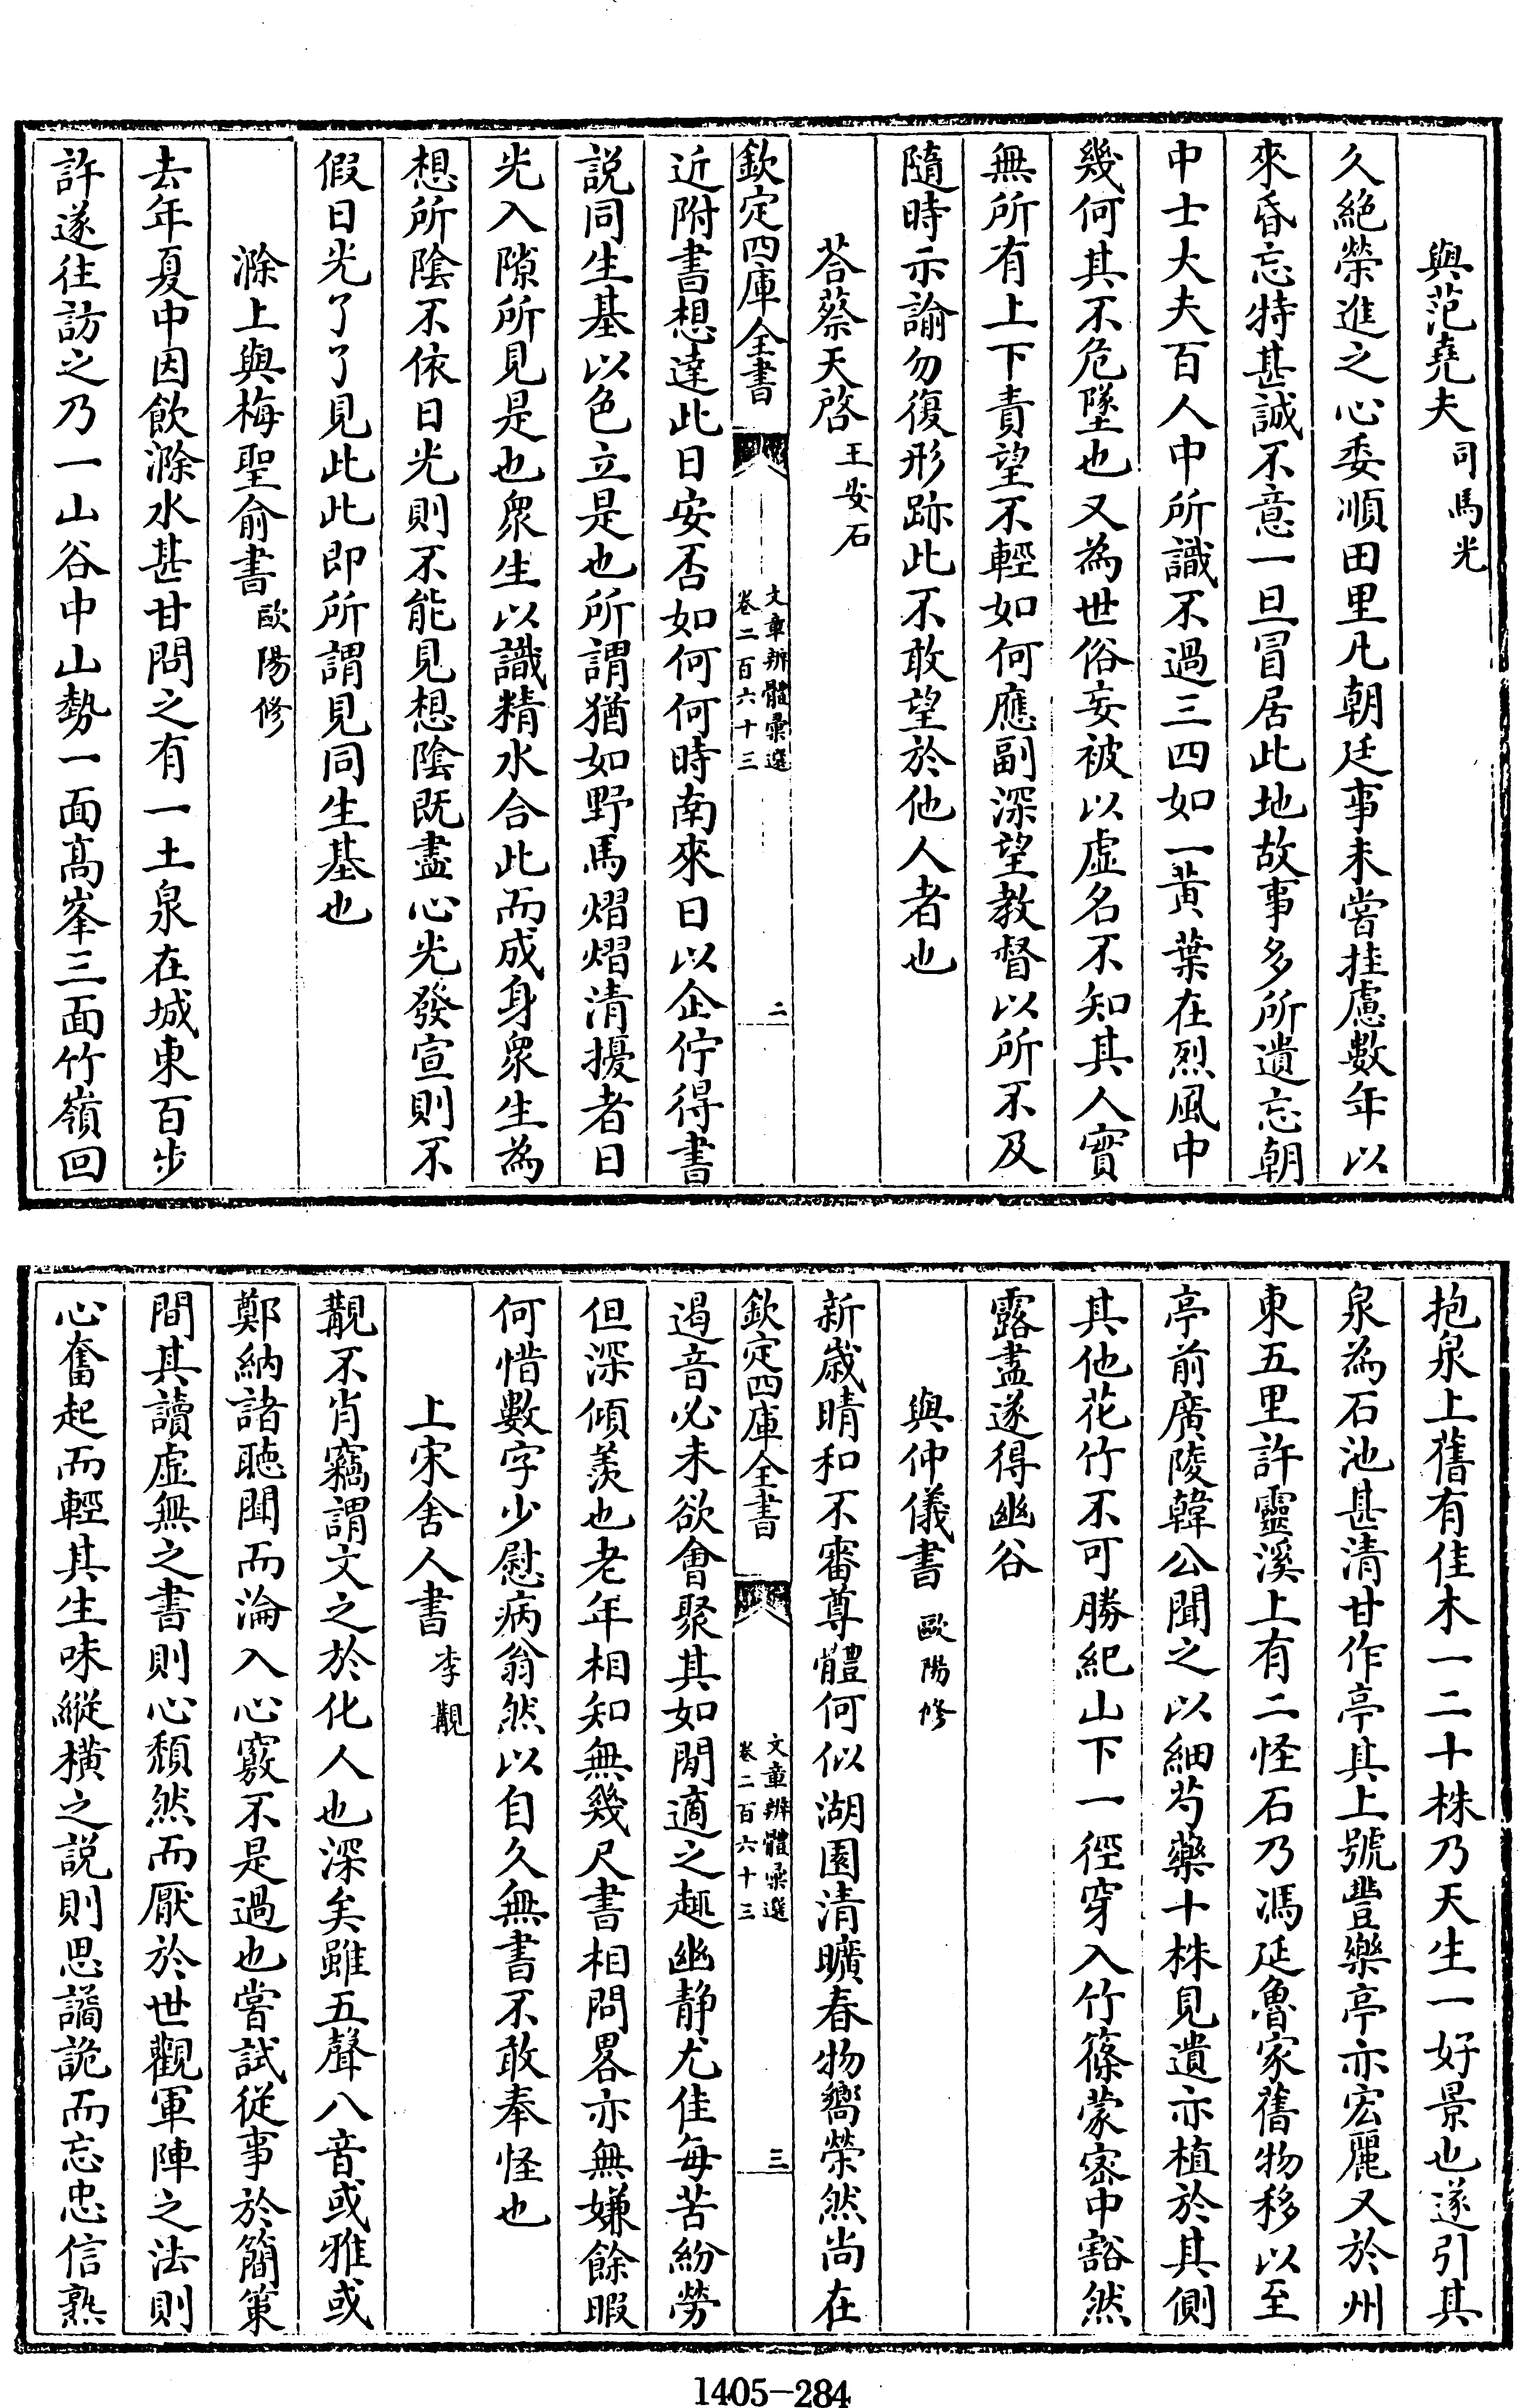 與范堯夫司馬光
久絕榮進之心委順田里凡朝廷事未嘗挂慮數年以
來昏忘特甚誠不意一旦冒居此地故事多所遺忘朝
中士大夫百人中所識不過三四如一黃葉在烈風中
幾何其不危墜也又為世俗妄被以虛名不知其人實
無所有上下責望不輕如何應副深望教督以所不及
隨時示諭勿復形跡此不敢望於他人者也
荅蔡天啓王安石
欽定四庫全書
文章辨體彙選
卷二百六十三
二
近附書想達此日安否如何何時南來日以企佇得書
説同生基以色立是也所謂猶如野馬熠熠清擾者日
光入隙所見是也衆生以識精水合此而成身衆生為
想所陰不依日光則不能見想陰既盡心光發宣則不
假日光了了見此此即所謂見同生基也
滁上與梅聖俞書歐陽修
去年夏中因飲滁水甚甘問之有一土泉在城東百步
許遂往訪之乃一山谷中山勢一面髙峯三面竹嶺回
抱泉上舊有佳木一二十株乃天生一好景也遂引其
泉為石池甚清甘作亭其上號豐樂亭亦宏麗又於州
東五里許靈溪上有二怪石乃馮延魯家舊物移以至
亭前廣陵韓公聞之以細芍藥十株見遺亦植於其側
其他花竹不可勝紀山下一徑穿入竹篠蒙密中豁然
露盡遂得幽谷
與仲儀書歐陽修
新歲晴和不審尊體何似湖園清曠春物嚮榮然尚在
欽定四庫全書
文章辨體彙選
卷二百六十三
三
遏音必未欲會聚其如閒適之趣幽静尤佳每苦紛勞
但深傾羨也老年相知無幾尺書相問畧亦無嫌餘暇
何惜數字少慰病翁然以自久無書不敢奉怪也
上宋舍人書李覯
覯不肖竊謂文之於化人也深矣雖五聲八音或雅或
鄭納諸聴聞而淪入心竅不是過也嘗試從事於簡策
間其讀虛無之書則心頽然而厭於世觀軍陣之法則
心奮起而輕其生味縱橫之説則思譎詭而忘忠信熟
1405-284